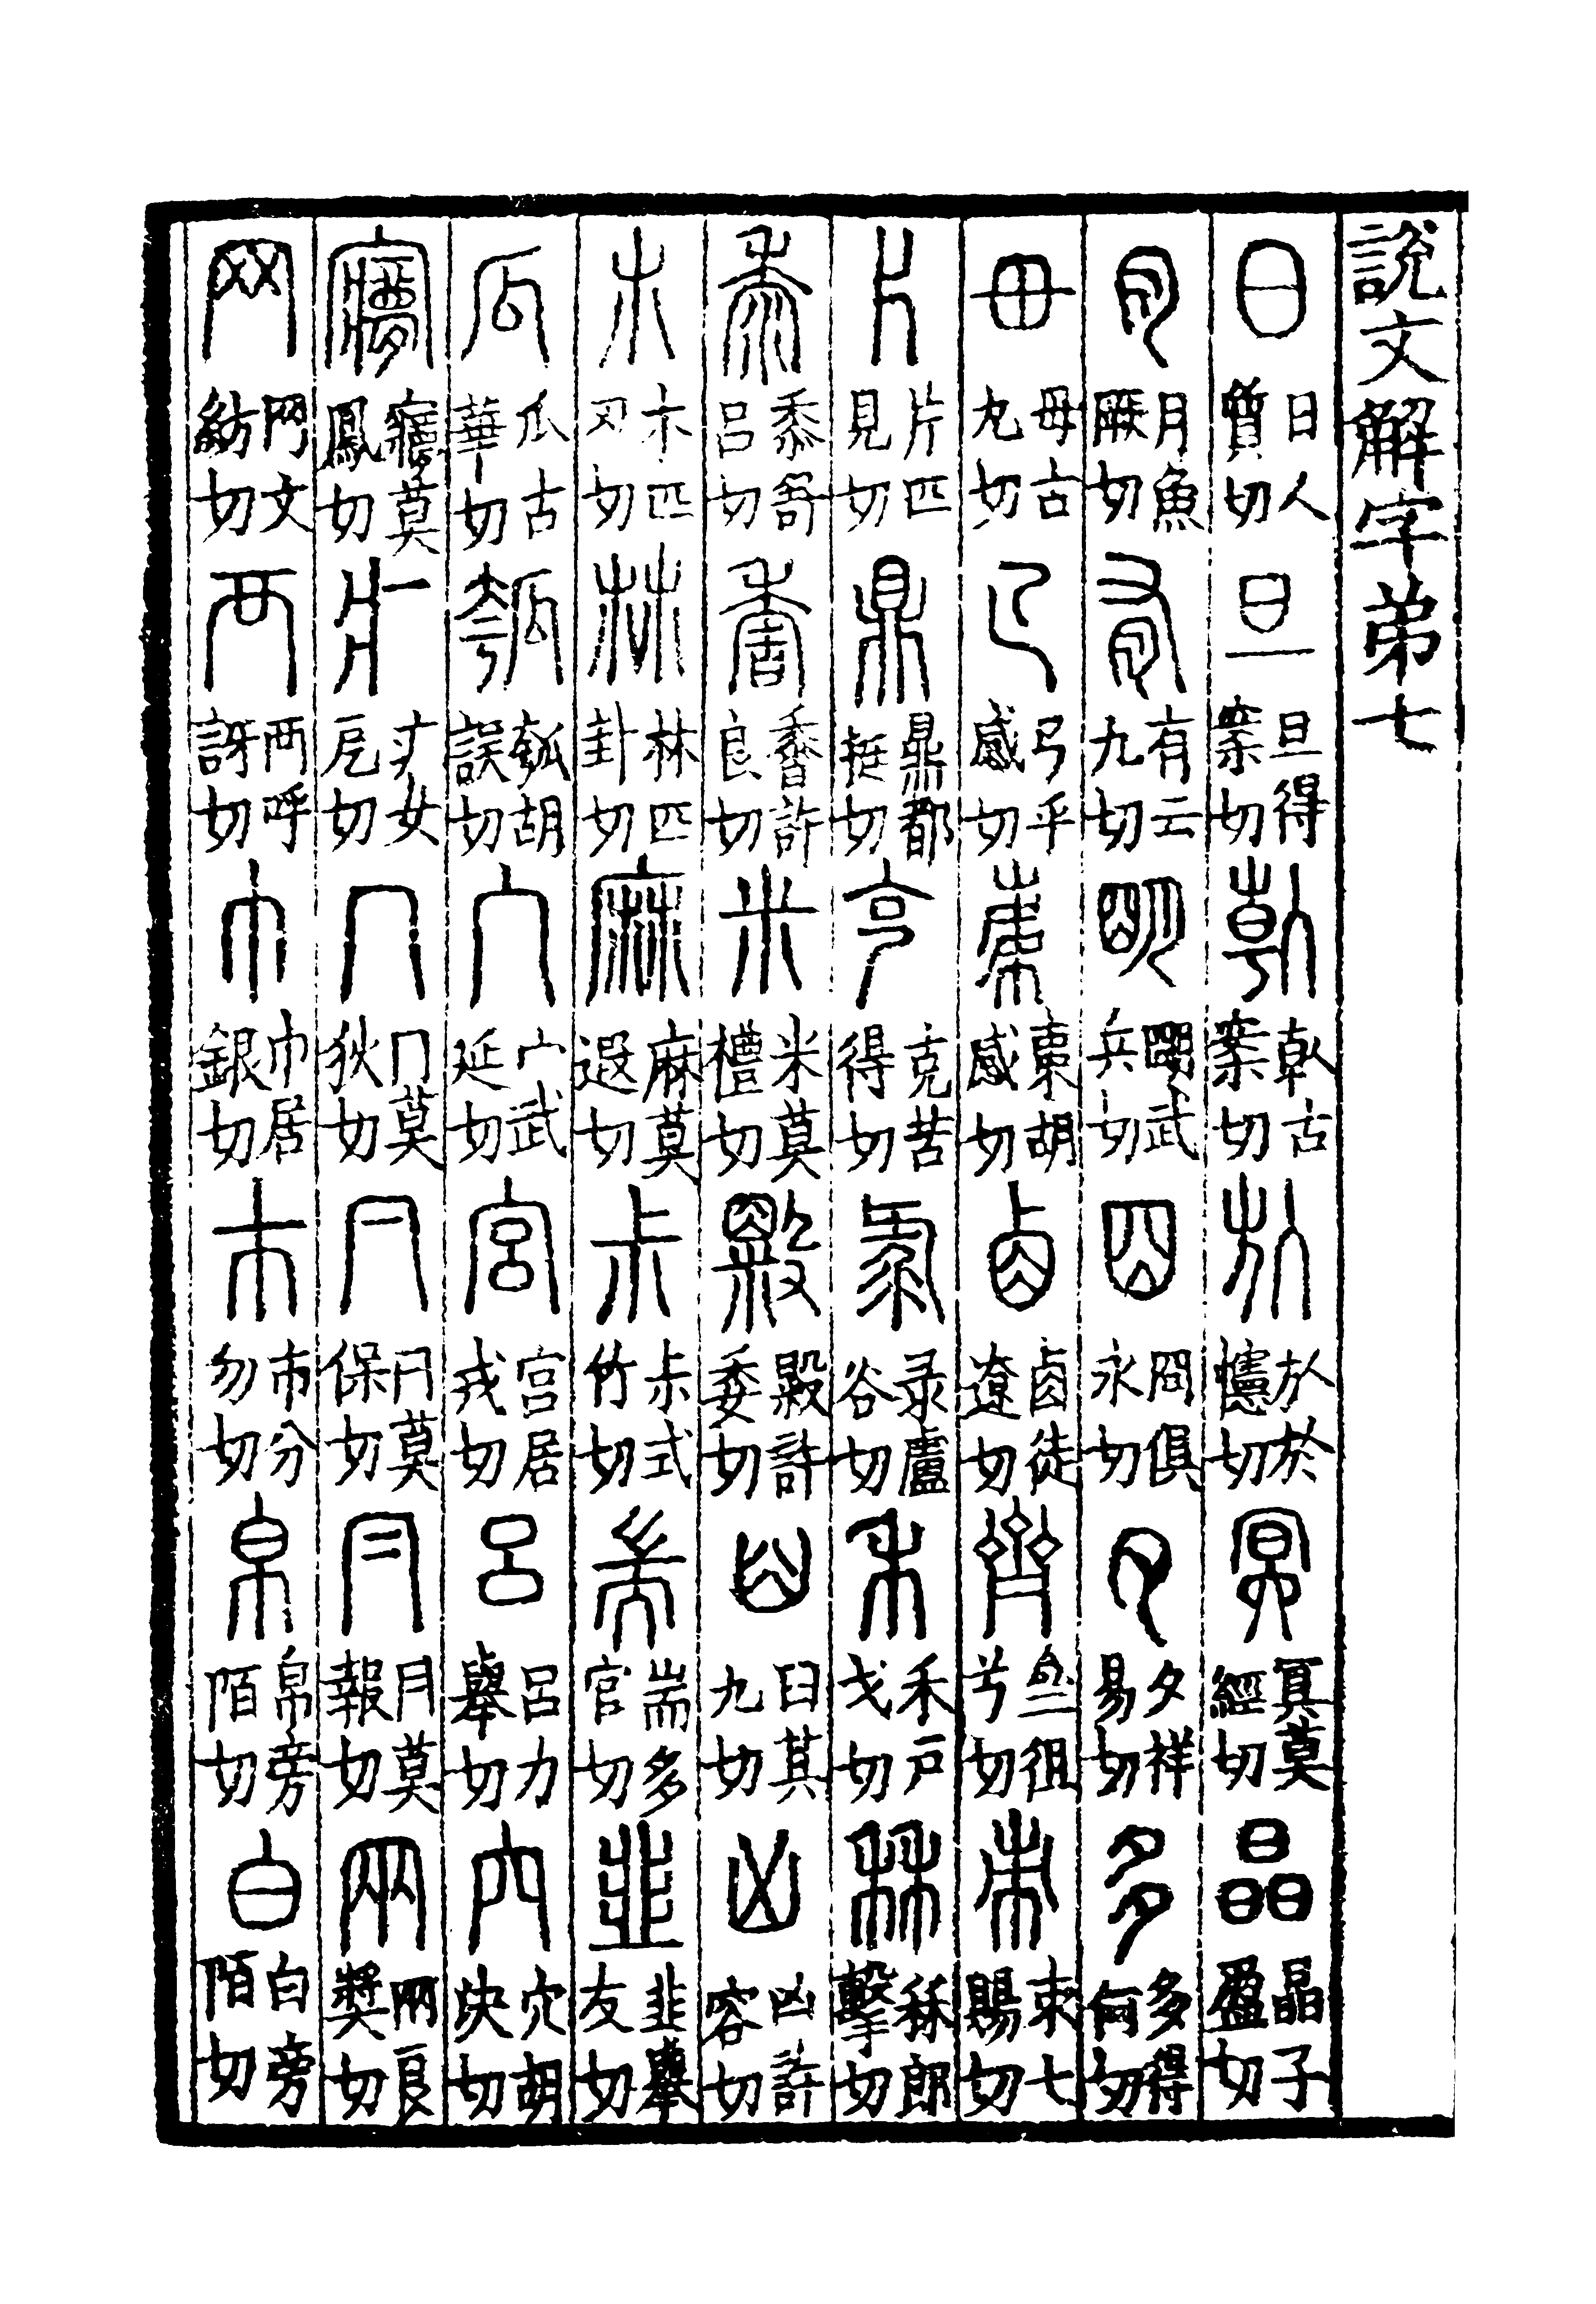 說文解字弟七
日 日人質切 旦 旦得案切 倝 倝古案切 㫃 㫃於幰切 冥 冥莫經切 晶 晶子盈切
月 月魚厥切 有 有云九切 朙 朙武兵切 囧 囧俱永切 夕 夕祥易切 多 多得何切
毌 毌古丸切 𢎘 𢎘乎感切 𣐺 𣐺胡感切 𠧪 卥徒遼切 齊 亝徂兮切 朿 朿七賜切
片 片匹見切 鼎 鼎都挺切 克 克苦得切 彔 彔盧谷切 禾 禾戶戈切 秝 秝郎擊切
黍 黍吾呂切 香 香許良切 米 米莫禮切 毇 毇許委切 臼 臼其九切 凶 凶許容切
朩 朩匹刃切 𣏟 𣏟匹卦切 麻 麻莫遐切 尗 尗式竹切 耑 耑多官切 韭 韭舉友切
瓜 瓜古華切 瓠 瓠胡誤切 宀 宀武延切 宮 宮居戎切 呂 呂力舉切 穴 穴胡決切
㝱 㝱莫鳳切 疒 疒女戹切 冖 冖莫狄切 𠔼 𠔼莫保切 冃 冃莫報切 㒳 㒳良獎切
网 网文紡切 襾 襾呼訝切 巾 巾居銀切 巿 巿分勿切 帛 帛旁陌切 白 白旁陌切